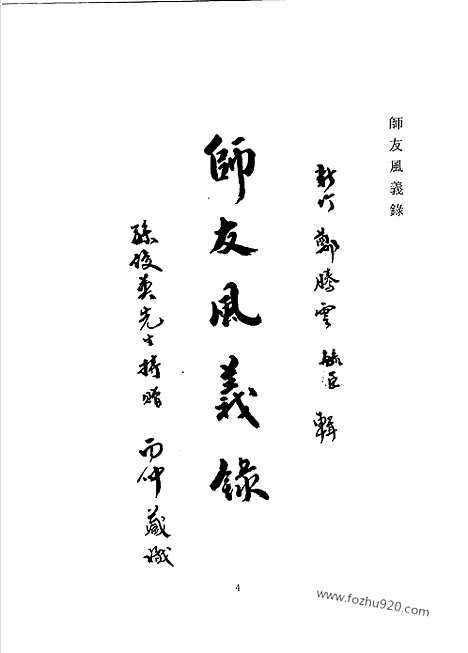 師友風義錄
新竹 鄭騰雲 毓臣 輯
師友風義錄
孫俊英先生持贈 而仲藏識
4
www.fozhu920.com